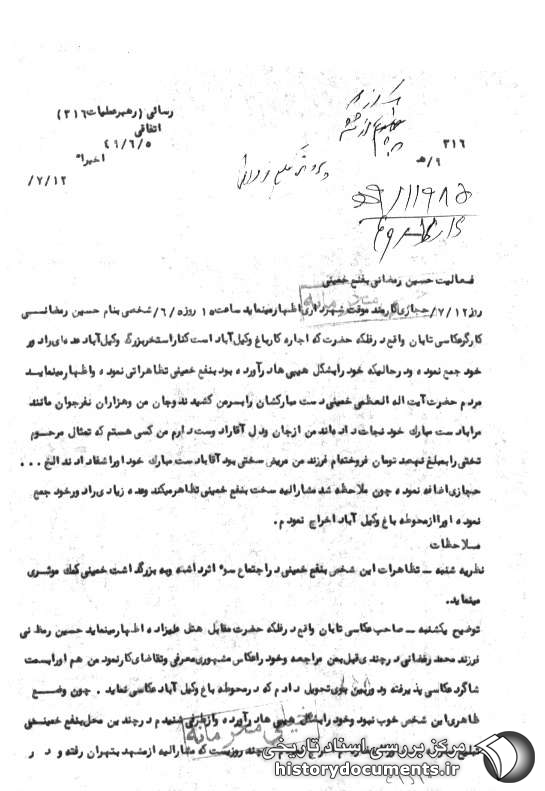 رسائی (رهبر عملیات ۳۱۶)
اتفاقی
۴۹/۶/۵
اخیرا"
۷/۱۲/
۳۱۶
۹/هـ
فعالیت حسین رمضانی بنفع خمینی
روز ۷/۱۲/ حجازی کارمند موقت شهرداری اظهار مینماید ساعت ۱۵ روز ۶/۵/ شخصی بنام حسین رمضانسی
کارگر عکاسی تابان واقع در فلکه حضرت که اجاره کار باغ وکیل آباد است کنار استخر بزرگ وکیل آباد عده ای را دور
خود جمع نموده و در حالیکه خود را بشکل هیپی ها در آورده بود بنفع خمینی تظاهراتی نموده و اظهار مینمایـد
مردم حضرت آیت اله العظمی خمینی دست مبارکشان را بسر من کشیدند و جان من و هزاران نفر جوان مانند
مرا با دست مبارک خود نجات داده اند من از جان و دل آقا را دوست دارم من کسی هستم که تمثال مرحـوم
تختی را بمبلغ نهصد تومان فروخته ام فرزند من مریض سختی بود آقا با دست مبارک خود او را شفا دادند الخ ...
حجازی اضافه نموده چون ملاحظه شد مشارالیه سخت بنفع خمینی تظاهر میکند و عده زیادی را دور خود جمع
نموده او را از محوطه باغ وکیل آباد اخراج نمودم.
مـلاحظات
نظریه شنبه ــ تظاهرات این شخص بنفع خمینی در اجتماع سوء اثر داشته و به بزرگداشت خمینی کمک موثـری
مینماید.
توضیح یکشنبه ــ صاحب عکاسی تابان واقع در فلکه حضرت مقابل هتل علیزاده اظهار مینماید حسین رمظـانی
فرزند محمد رمضانی در چندی قبل بمن مراجعه و خود را عکاس مشهوری معرفی و تقاضای کار نمود من هم او را بسمت
شاگرد عکاسی پذیرفته و دوربین بوی تحویل دادم که در محوطه باغ وکیل آباد عکاسی نماید . چون وضـــع
ظاهری این شخص خوب نبود و خود را بشکل هیپی ها در آورده و از طرفی شنیدم در چندین محل بنفع خمینـی
چند روزیست که مشارالیه از مشهد بتهران رفته و د ر
خیلی محرمانه
مرکز بررسی اسناد تاریخی
historydocuments.ir